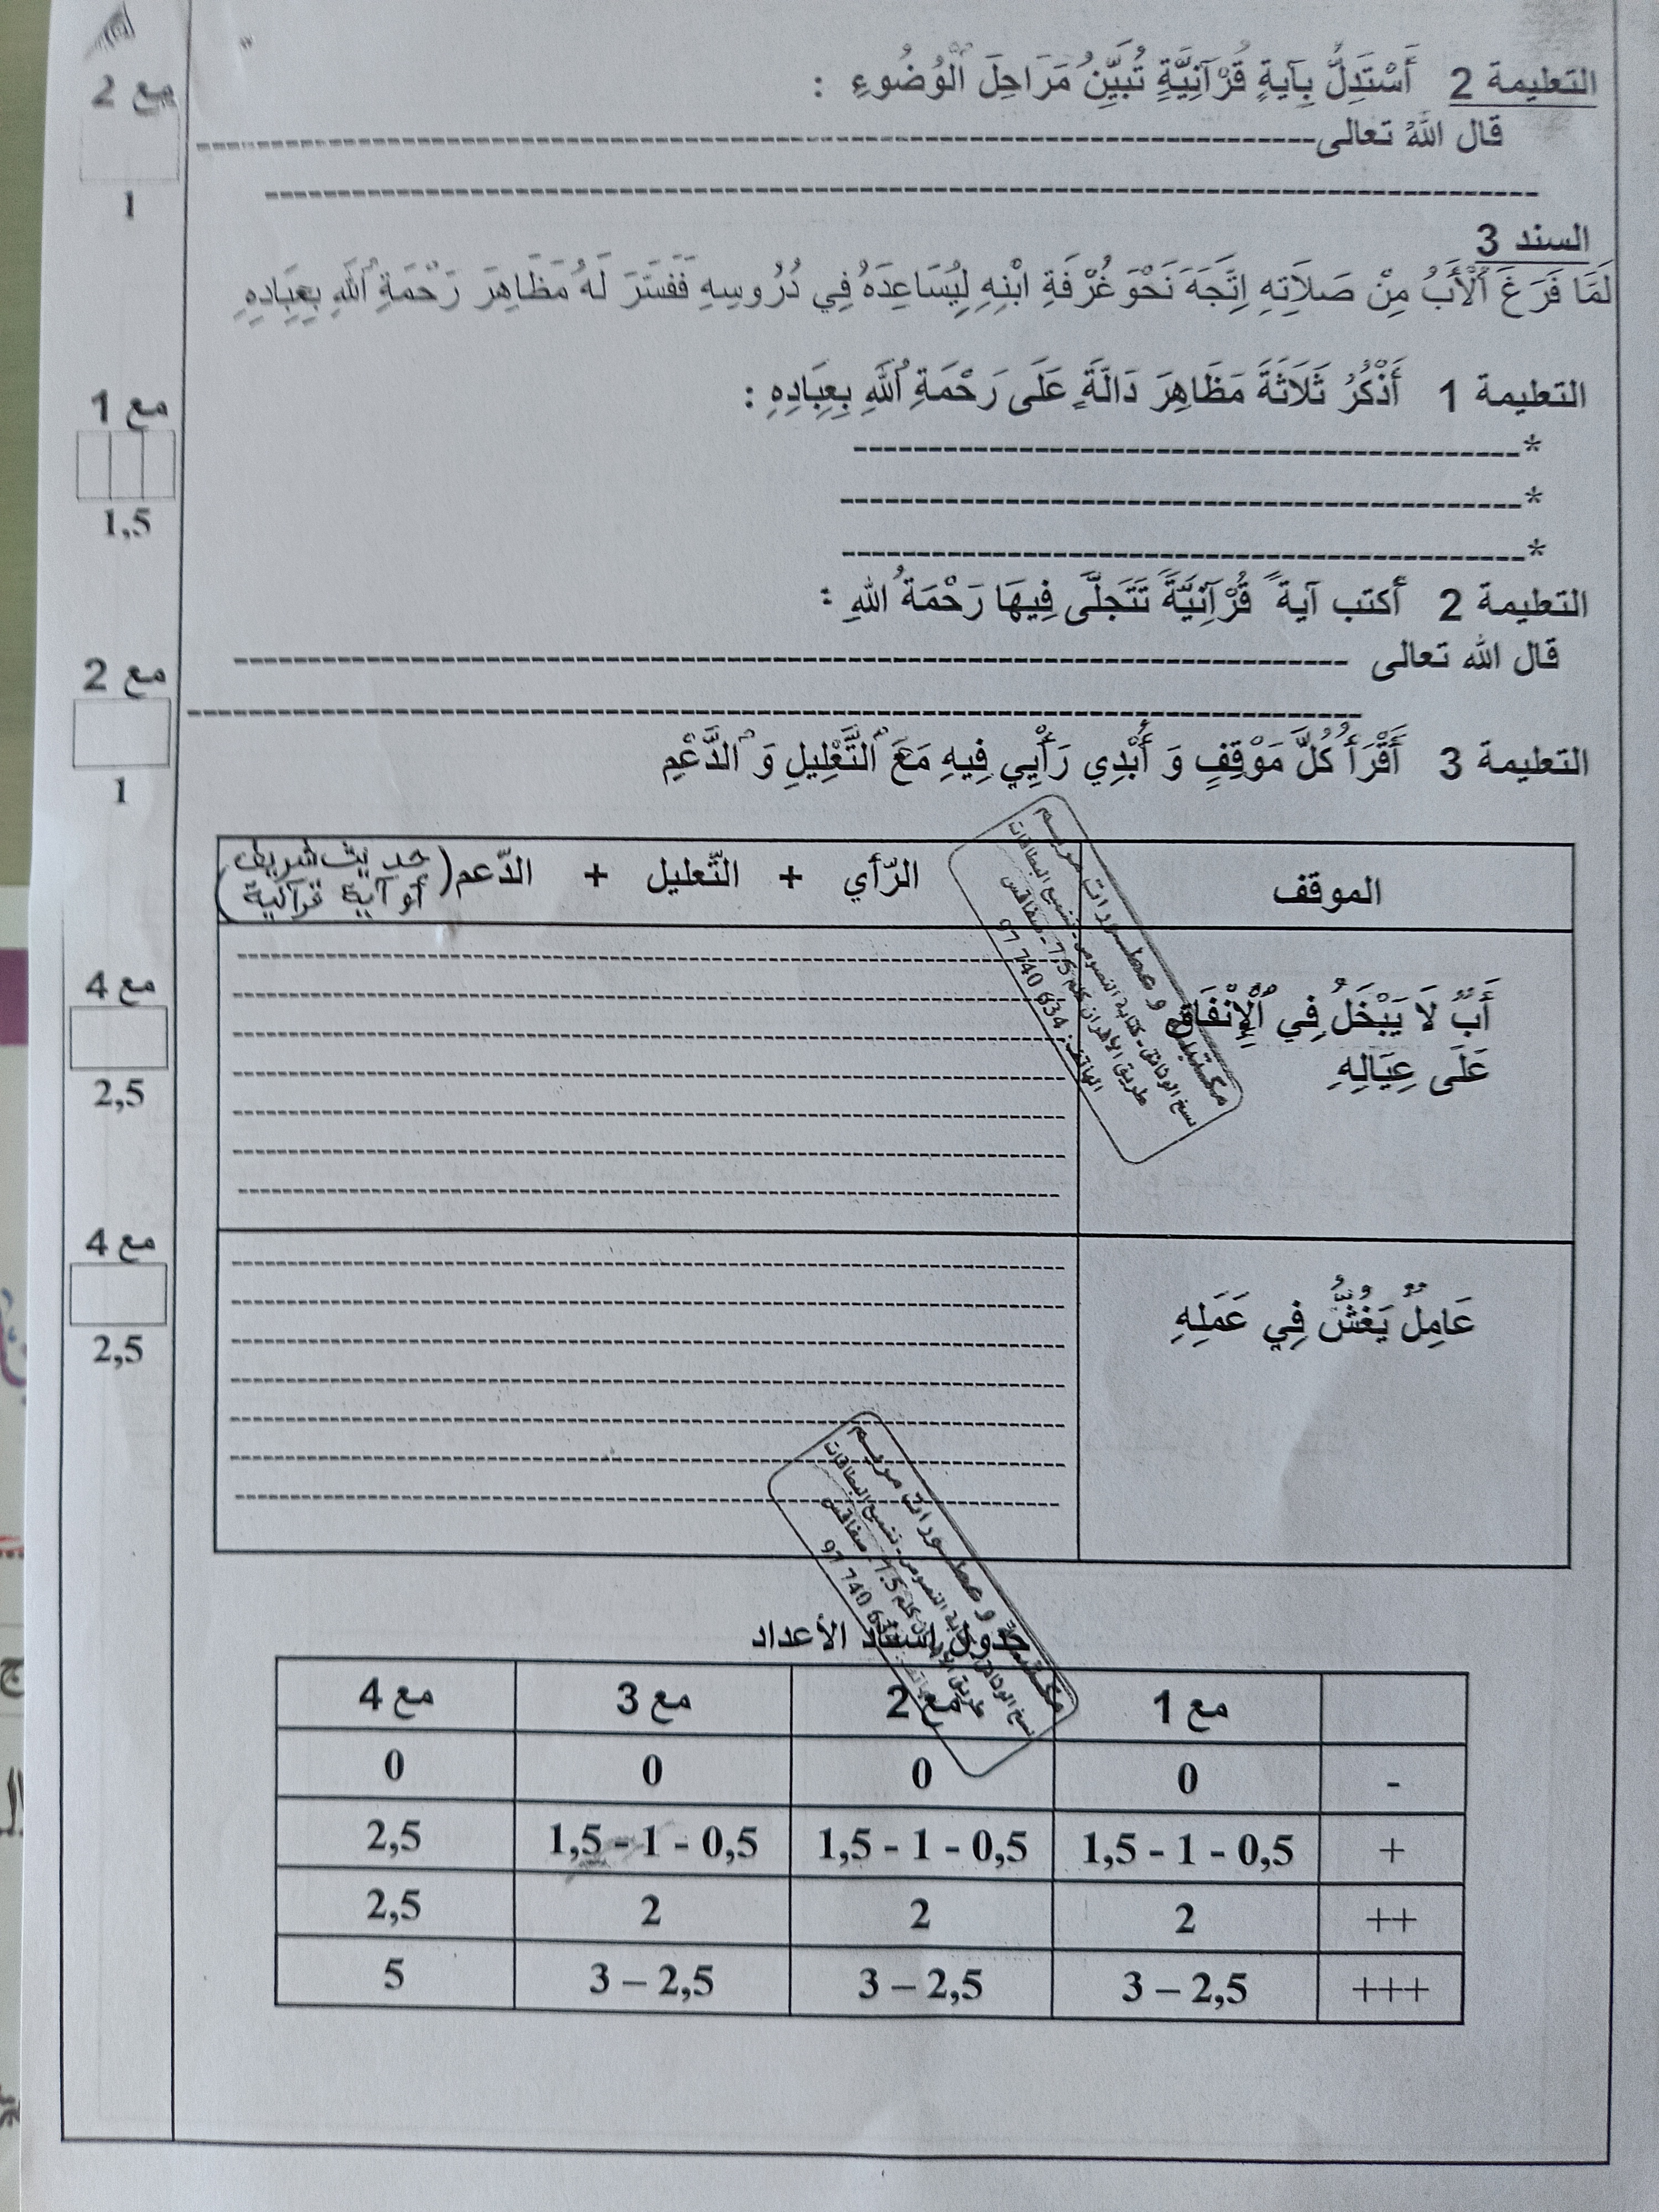 التعليمة 2 أَسْتَدِلُّ بِآيَةٍ قُرْآنِيَّةٍ تُبَيِّنُ مَرَاحِلَ الْوُضُوءِ :
مع 2
قال اللهُ تعالى
1
السند 3
لَمَّا فَرَغَ الْأَبُ مِنْ صَلَاتِهِ اِتَّجَهَ نَحْوَ غُرْفَةِ ابْنِهِ لِيُسَاعِدَهُ فِي دُرُوسِهِ فَفَسَّرَ لَهُ مَظَاهِرَ رَحْمَةِ اللهِ بِعِبَادِهِ
التعليمة 1 أَذْكُرُ ثَلَاثَةَ مَظَاهِرَ دَالَّةٍ عَلَى رَحْمَةِ اللهِ بِعِبَادِهِ :
مع 1
*
*
1,5
*
التعليمة 2 أكتب آية ً قُرْآنِيَّةً تَتَجَلَّى فِيهَا رَحْمَةُ اللهِ :
قال الله تعالى
مع 2
1
التعليمة 3 أَقْرَأُ كُلَّ مَوْقِفٍ وَ أُبْدِي رَأْيِي فِيهِ مَعَ التَّعْلِيلِ وَ الدَّعْمِ
الموقف
الرّأي + التّعليل + الدّعم (حديث شريف أو آية قرآنية)
أَبٌ لَا يَبْخَلُ فِي الْإِنْفَاقِ
عَلَى عِيَالِهِ
مع 4
2,5
عَامِلٌ يَغُشُّ فِي عَمَلِهِ
مع 4
2,5
مكتبة و عطورات مريم
نسخ الوثائق - كتابة النصوص - تشميع البطاقات
طريق الأفران كلم 7,5 - صفاقس
الهاتف : 97 740 634
مكتبة و عطورات مريم
جدول إسناد الأعداد
مع 1 مع 2 مع 3 مع 4
- 0 0 0 0
+ 0,5 - 1 - 1,5 0,5 - 1 - 1,5 0,5 - 1 - 1,5 2,5
++ 2 2 2 2,5
+++ 2,5 – 3 2,5 – 3 2,5 – 3 5